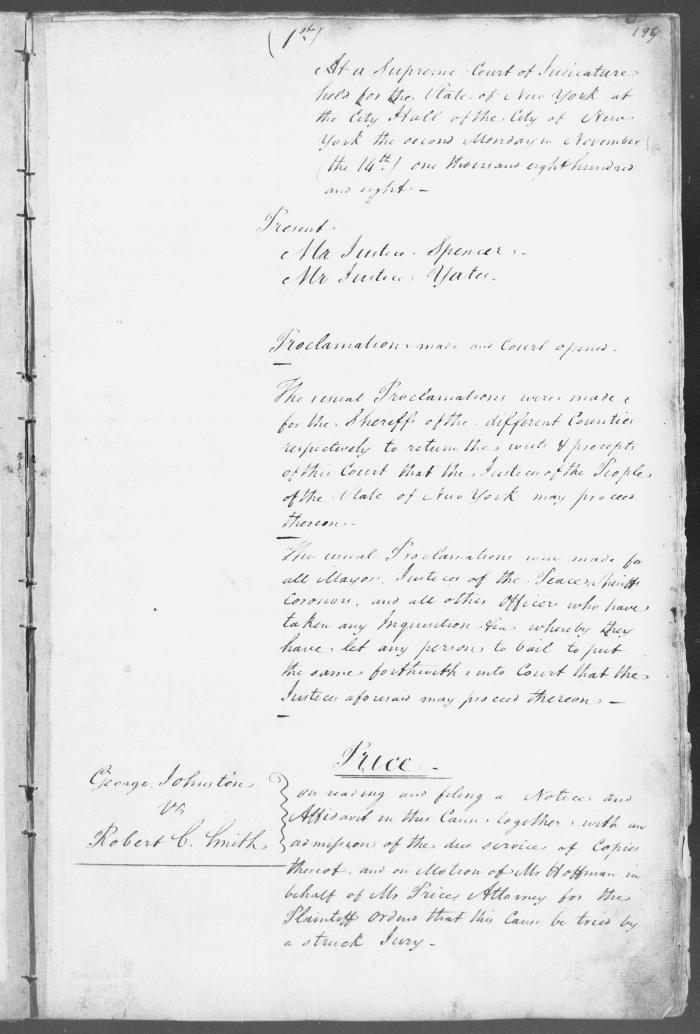 (1st)
At a Supreme Court of Judicature
held for the State of New York at
the City Hall of the City of New
York the second Monday in November
(the 14th) one thousand eight hundred
and eight -
Present
Mr Justice Spencer -
Mr Justice Yates -
Proclamation made and Court opened -
The usual Proclamations were made
for the Sheriffs of the different Counties
respectively to return the writs & precepts
of this Court that the Justices of the People
of the State of New York may proceed
thereon -
The usual Proclamations were made for
all Mayors, Justices of the Peace, Sheriffs
Coroners, and all other Officers who have
taken any Inquisition &ca whereby they
have let any person to bail to put
the same forthwith into Court that the
Justices aforesaid may proceed thereon -
Price -
George Johnston
vs
Robert C. Smith
on reading and filing a Notice and
Affidavit in this Cause together with an
admission of the due service of Copies
thereof and on Motion of Mr Hoffman in
behalf of Mr Price Attorney for the
Plaintiff Orders that this Cause be tried by
a struck Jury -